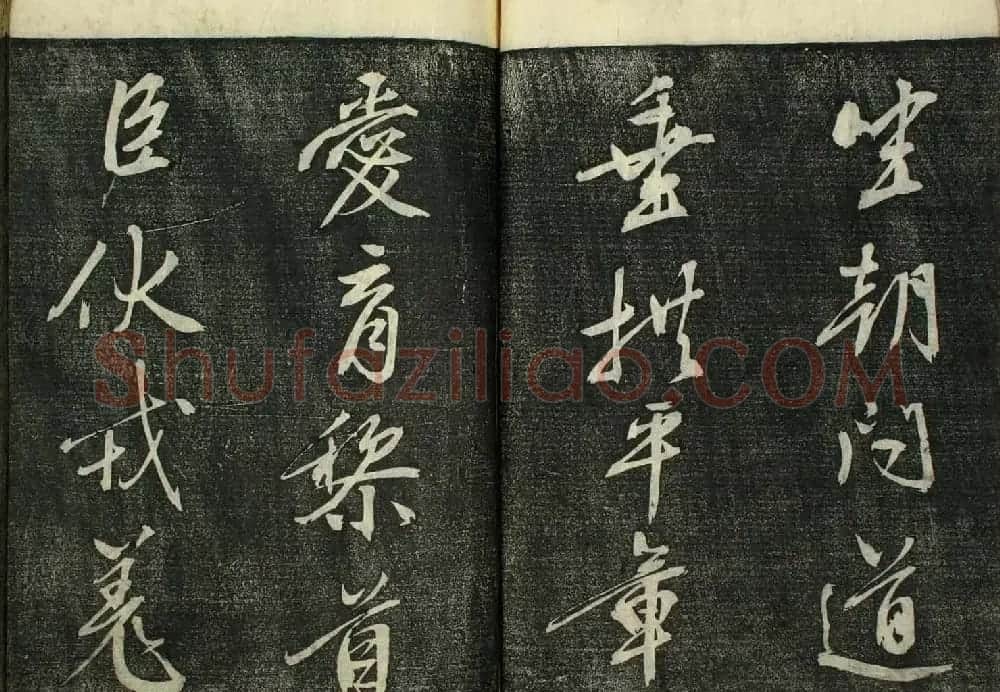 坐朝问道
垂拱平章
愛育黎首
臣伏戎羌
Shufaziliao.COM